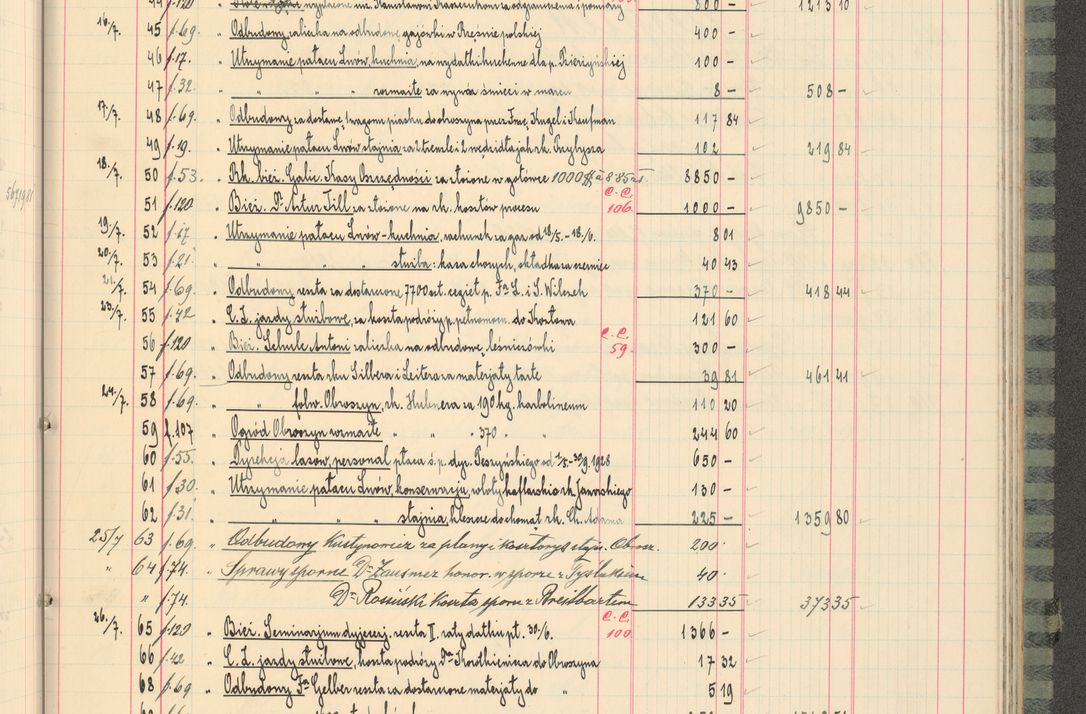 44 f.120 " wypłacone na Stanisławowi Karzuchoni za odgraniczenia i pomiary 800 - 1213 10
16./7. 45 f.69. " Odbudowy zaliczka na odbudowę gajówki w Rześnie polskiej 400 -
46 f.17. " Utrzymanie pałacu Lwów, kuchnia, na wydatki kuchenne dla p. Dzierżyńskiej 100 -
47 f.32. " " " " rozmaite za wywóz śmieci w marcu 8 - 508 -
17./7. 48 f.69. " Odbudowy za dostawę 1 wagonu piasku do Obroszyna przez Fmę Kugel i Kaufman 117 84
49 f.19. " Utrzymanie pałacu Lwów stajnia za 2 trenzle i 2 wędzidła rk. Przybysza 102 219 84
18./7. 50 f.53. " Rk. bież. Galic. Kasy Oszczędności za złożone w gotówce 1000 $ à 8·85 zł. 8850 -
51 f.120 " Bież. Dr Artur Till za złożone na rk. kosztów procesu C.C. 106. 1000 - 9850 -
19./7. 52 f.17 " Utrzymanie pałacu Lwów - kuchnia, rachunek za gaz od 18/5. - 18./6. 8 01
20./7. 53 f.21. " " " " służba: kasa chorych, składka za czerwiec 40 43
21./7. 54 f.69. " Odbudowy reszta za dostarczone 7700 szt. cegieł p. Fa L. i S. Wilczek 370 - 418 44
23./7. 55 f.42 " C. Z. jazdy służbowe, za koszta podróży p. pełnomocn. do Kozłowa 121 60
56 f.120 " Bież. Schulc Antoni zaliczka na odbudowę leśniczówki C.C. 59. 300 -
57 f.69. " Odbudowy reszta rku Silbera i Leitera za materjały tarte 39 81 461 41
24./7. 58 f.69. " " folw. Obroszyn, rk. Hubnera za 190 kg. karbolineum 110 20
59 f.107 " Ogród Obroszyn rozmaite " " " 370 " " 244 60
60 f.55. " Dyrekcja lasów, personal płaca ś.p. dyr. Peszyńskiego od 1/5.-30/9.1928 650 -
61 f.30. " Utrzymanie pałacu Lwów, konserwacja, roboty kaflarskie rk. Jaworskiego 130 -
62 f.31. " " " " stajnia, kleszcze do chomąt rk. Ch. Adama 225 - 1359 80
25/7 63 f.69. " Odbudowy Kustynowicz za plany i kosztorys stajn. Obrosz. 200 ·
" 64 f.74. " Sprawy sporne Dr Zausmer honor. w sporze z Tyslukiem 40 ·
" f.74. Dr Rosiński koszta sporu z Breitbartem 133 35 373 35
26./7. 65 f.120 " Bież. Seminarjum dyjecezj. reszta II. raty datku pł. 30./6. C.C. 100. 1366 -
66 f.42 " C. Z. jazdy służbowe, koszta podróży Dra Korotkiewicza do Obroszyna 17 32
68 f.69 " Odbudowy Fa Gelber reszta za dostarczone materjały do " 5 19